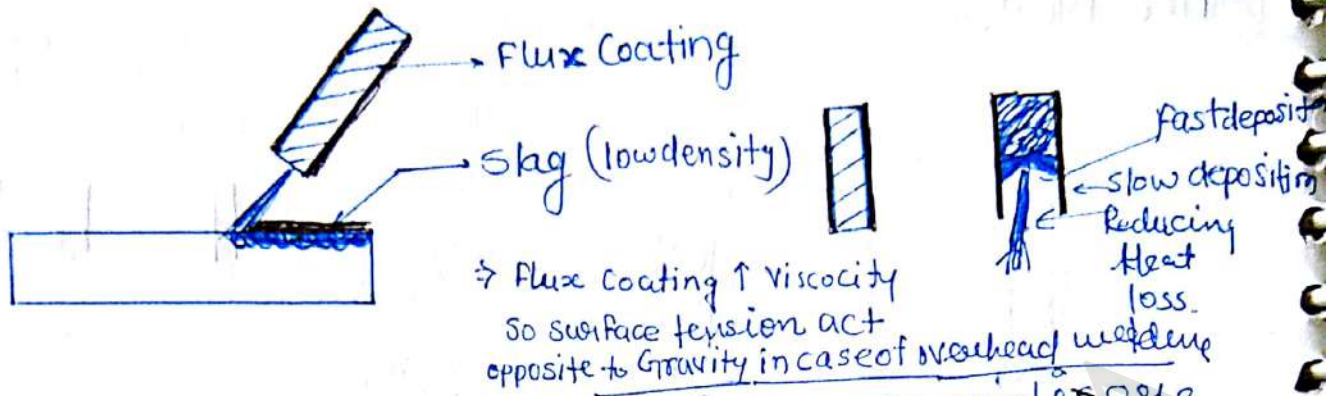 Flux Coating
Slag (low density)
fast deposit
slow deposition
Reducing
Heat
loss.
⇒ Flux coating ↑ Viscocity
so surface tension act
opposite to Gravity in case of overhead